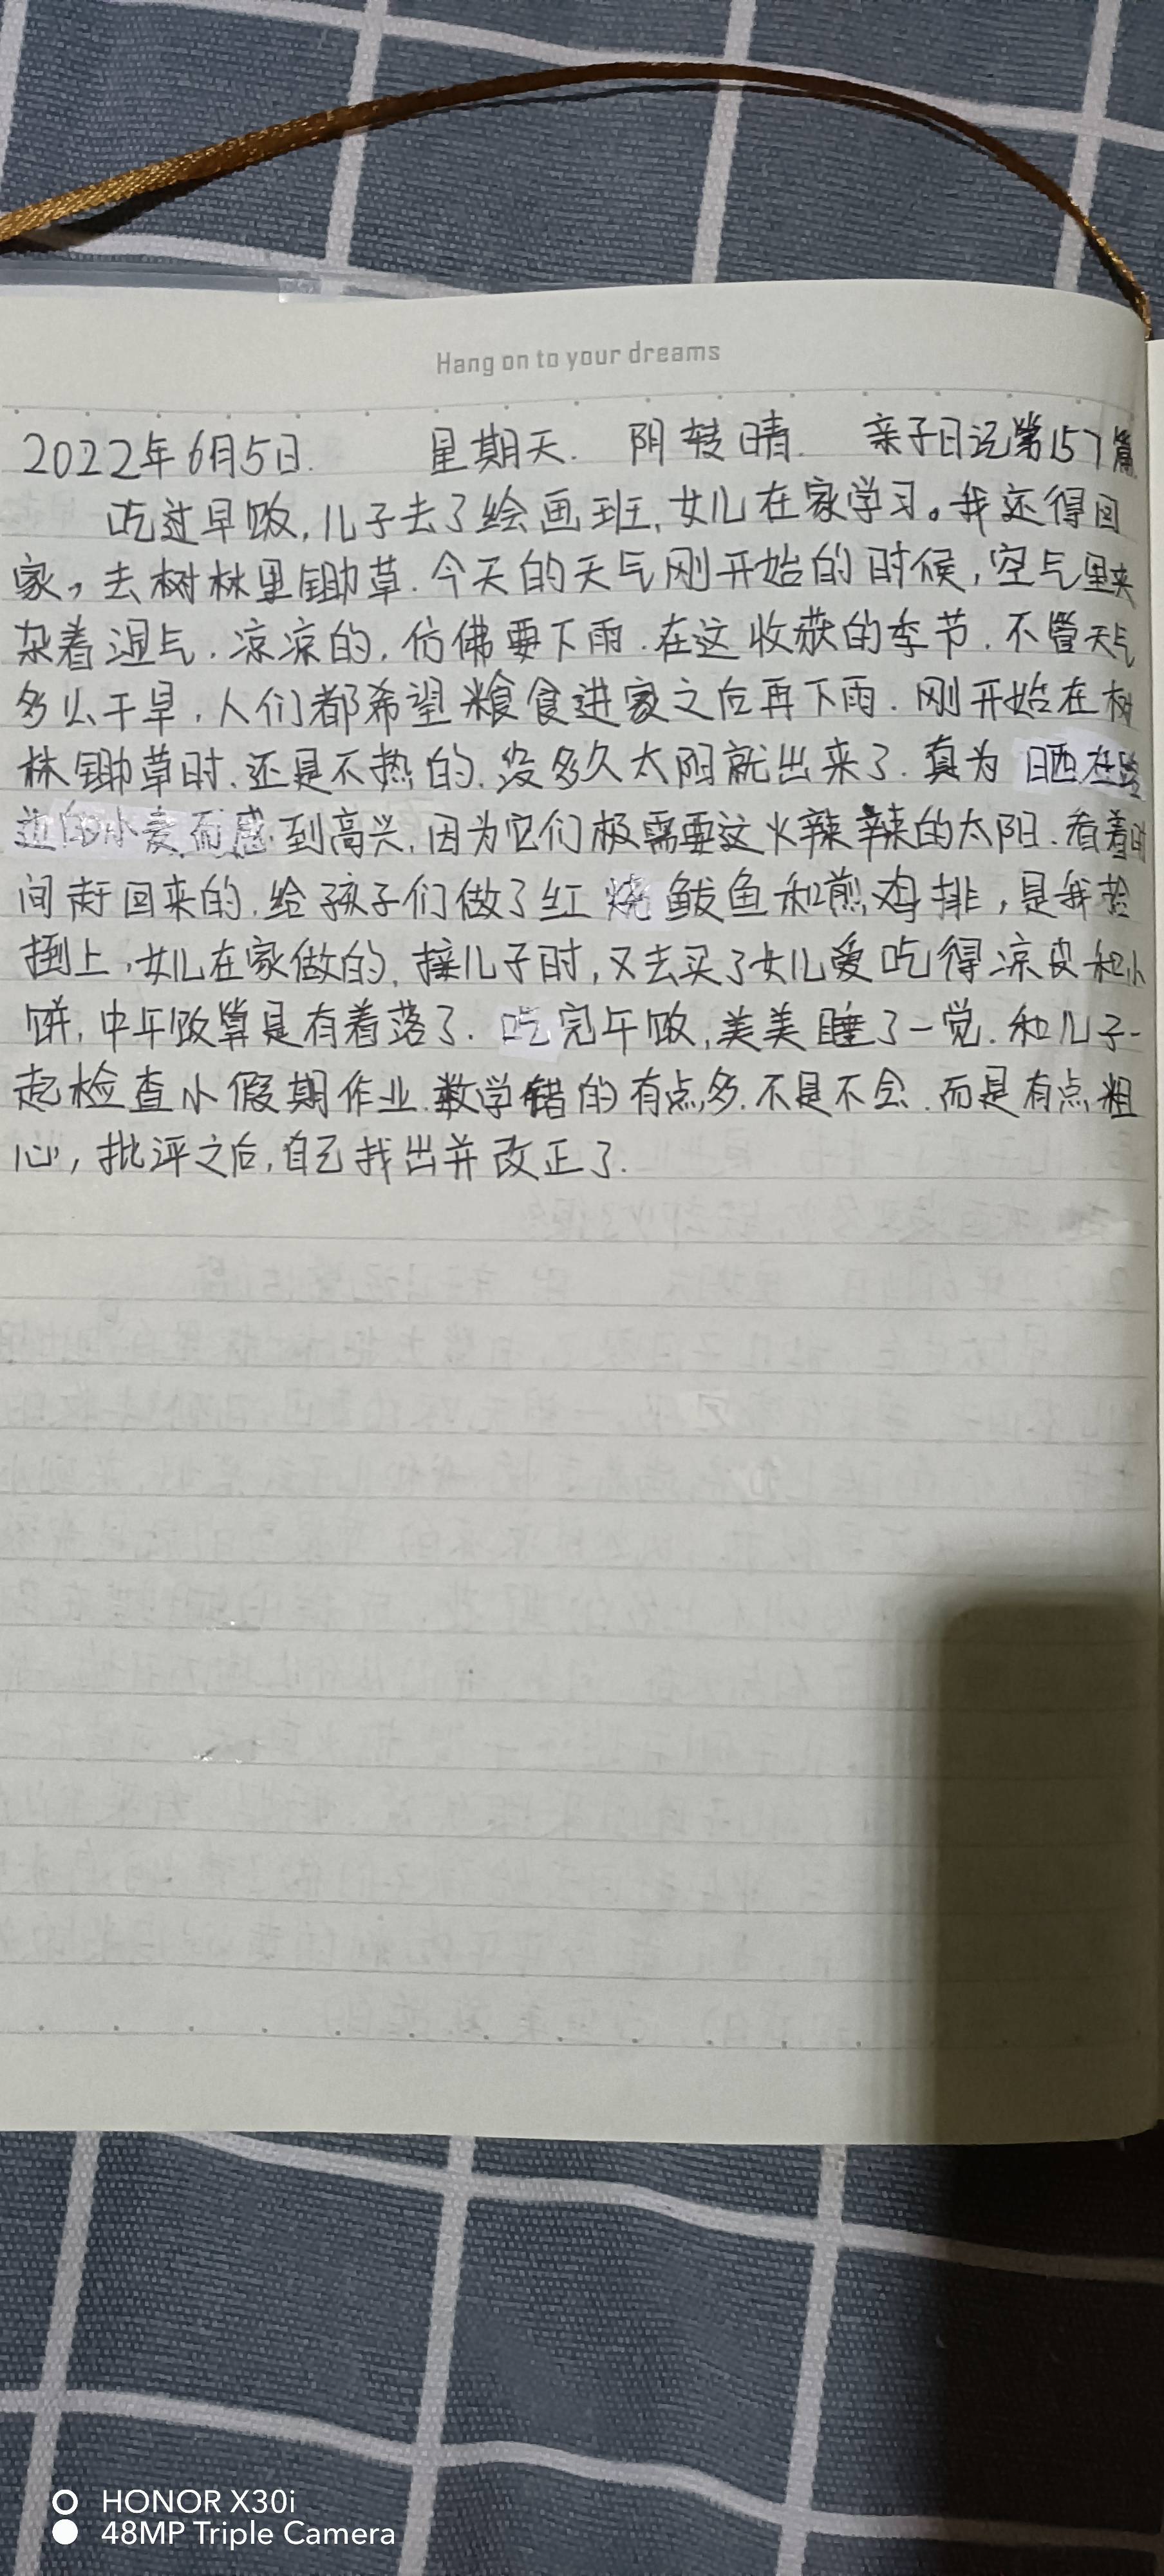 Hang on to your dreams
2022年6月5日. 星期天. 阴转晴. 亲子日记第157篇
吃过早饭,儿子去了绘画班,女儿在家学习。我还得回
家,去树林里锄草.今天的天气刚开始的时候,空气里夹
杂着湿气.凉凉的,仿佛要下雨.在这收获的季节.不管天气
多么干旱,人们都希望粮食进家之后再下雨.刚开始在树
林锄草时.还是不热的.没多久太阳就出来了.真为晒在路
边的小麦而感到高兴,因为它们极需要这火辣辣的太阳.看着时
间赶回来的.给孩子们做了红烧鲅鱼和煎鸡排,是我拾
捯上,女儿在家做的,接儿子时,又去买了女儿爱吃得凉皮和小
饼,中午饭算是有着落了.吃完午饭,美美睡了一觉.和儿子一
起检查小假期作业.数学错的有点多.不是不会.而是有点粗
心,批评之后,自己找出并改正了.
HONOR X30i
48MP Triple Camera